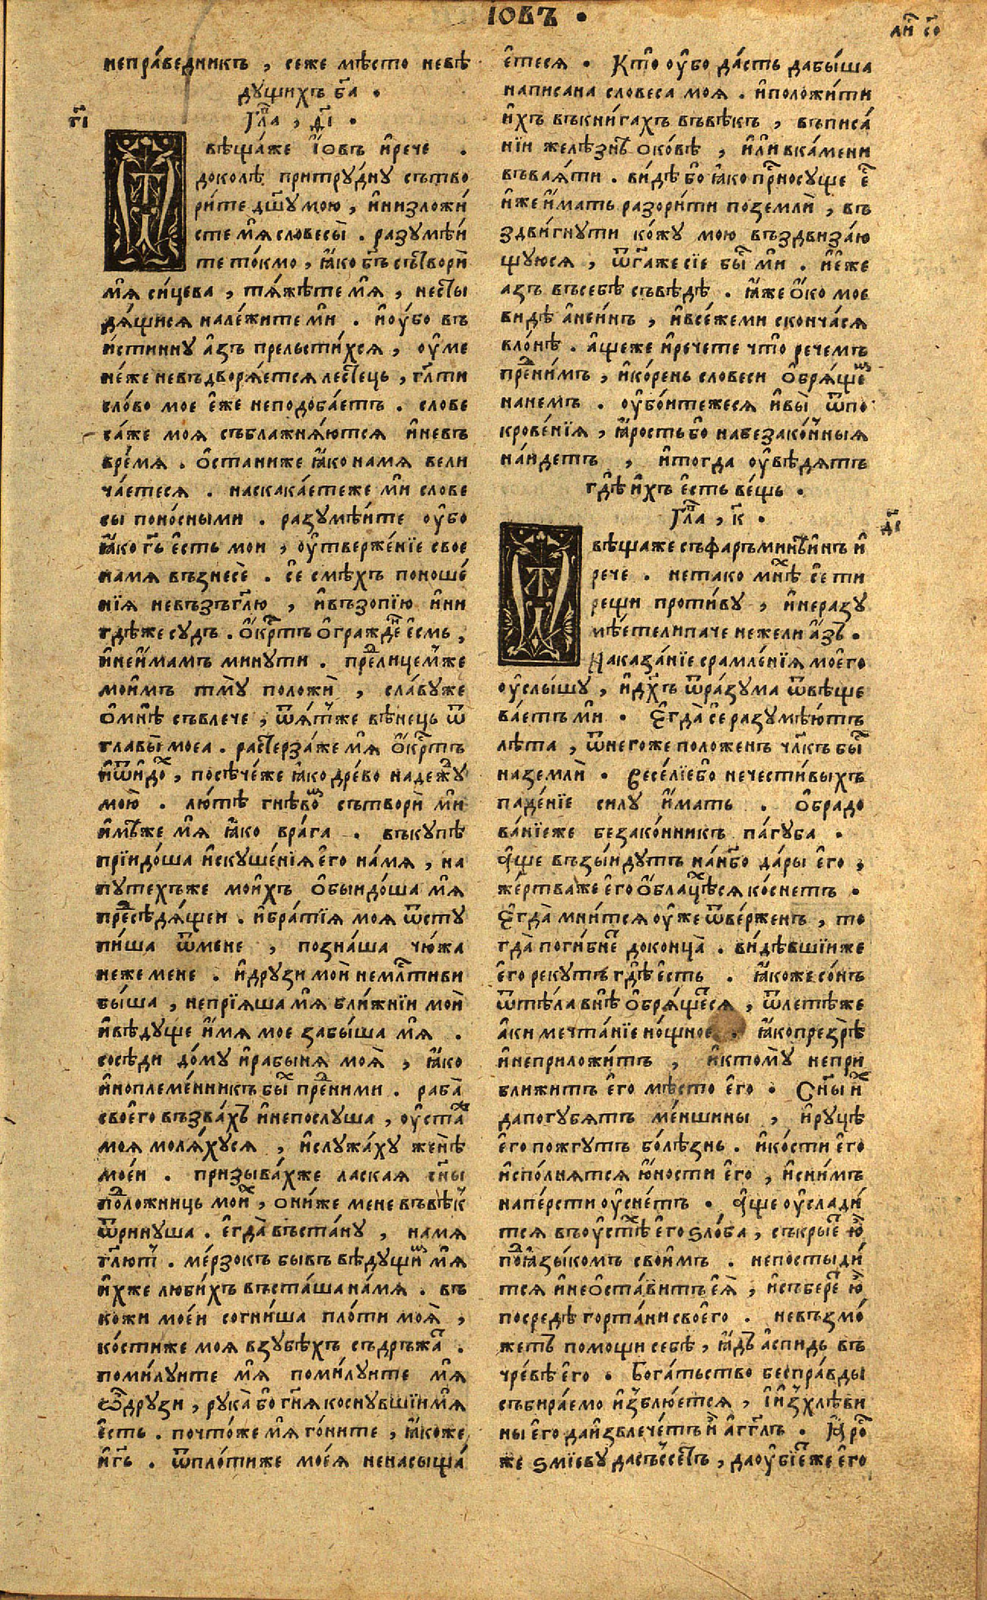 ІОВЪ .
лиⷭ҇ со
неправедникъ , сеже мѣсто невѣ
дущихъ б҃а .
Гла҃ , ѳ҃і .
г҃і
ѿвѣщаже і҆овъ и҆рече .
доколѣ притрудну сътво
рите дш҃у мою , и҆низложи
сте мѧ҆ словесы̀ . разумѣи
те токмо , ꙗ҆ко бг҃ъ сътвори
мѧ҆ сицева , тѧжете мѧ҆ , нестыⷣ
дѧщисѧ належите ми҆ . и҆оу҆бо въ
и҆стинну а҆зъ прельстихсѧ , оу҆ме
неже невъдворѧетсѧ лестець , гл҃ти
слово мое є҆же неподобаетъ . слове
саже моѧ съблажнѧютсѧ и҆невъ
времѧ . ѻ҆станиже ꙗ҆ко намѧ вели
чаетесѧ . наскакаетеже ми҆ слове
сы поносными . разумѣите оу҆бо
ꙗ҆ко гь҃ є҆сть мои , оу҆твержение свое
намѧ възнесе . се҆ смѣхъ поноше
ніѧ невъзъгл҃ю , и҆възопію и҆ни
гдѣже судъ . ѻ҆крⷭ҇тъ ѻ҆гражденъ є҆смь ,
и҆неи҆мамъ минути . предлицемъже
моимъ тму положи , славуже
ѡ҆мнѣ съвлече , ѿѧтъже вѣнець ѿ
главы моеа . растерзаже мѧ҆ ѻ҆крⷭ҇тъ
и҆ѿидоⷯ , посѣчеже ꙗ҆ко древо надежⷣу
мою . лютѣ гнѣвоⷨ сътвори ми҆
и҆мѣже мѧ҆ ꙗ҆ко врага . въкупѣ
пріидоша и҆скушеніѧ є҆го намѧ , на
путехъже моихъ ѻ҆быидоша мѧ҆
пресѣдѧщеи . и҆братіѧ моѧ ѿсту
пиша ѿмене , познаша чюжа
неже мене . и҆друзи мои немлⷭ҇тиви
быша , непріѧша мѧ҆ ближніи мои
и҆вѣдуще и҆мѧ мое забыша мѧ҆ .
сосѣди дому и҆рабынѧ моѧ , ꙗ҆ко
и҆ноплеменникъ быⷯ преⷣними . раба
своего възвахъ и҆непослуша , оу҆стаже
моѧ молѧхусѧ , и҆служаху женѣ
моеи . призывахже лаская сн҃ы
подложниць моиⷯ , ониже мене въвѣкъ
ѿринуша . є҆гда въстану , намѧ
гл҃ютъ . мерзокъ бывъ вѣдущиⷨ мѧ҆
и҆хже любихъ въсташа намѧ . въ
кожи моеи согниша плоти моѧ ,
костиже моѧ взубѣхъ съдръжаⷯ .
помилуите мѧ҆ помилуите мѧ҆
ѽдрузи , рука бо гн҃ѧ коснувшіимѧ
є҆сть . почтоже мѧ҆ гоните , ꙗ҆коже
и҆гь҃ . ѿплотиже моеѧ ненасыща
є҆тесѧ . Кто оу҆бо дасть дабыша
написана словеса моѧ . и҆положити
и҆хъ въкнигахъ въвѣкъ , въписа
ніи желѣзнѣ оковѣ , и҆ли вкамени
въваѧти . видѣ бо ꙗ҆ко приⷭ҇носуще єⷭ҇
и҆же и҆мать разорити поземли , въ
здвигнути кожу мою въздвизаю
щуюсѧ , ѿгаже сіе быⷭ҇ ми҆ . и҆є҆же
азъ въсебѣ съвѣдѣ . ꙗ҆же ѻ҆ко мое
видѣ а҆неинъ , и҆всежеми скончасѧ
влонѣ . а҆щеже и҆речете что речемъ
преⷣнимъ , и҆корень словеси ѻ҆брѧщеⷨ
нанемъ . оу҆боитежесѧ и҆вы ѿпо
кровеніѧ , ꙗ҆рость бо набезаконныѧ
наидетъ , и҆тогда оу҆вѣдѧтъ
гдѣ и҆хъ є҆сть вещь .
Гла҃ , к҃ .
д҃і
ѿвѣщаже съфаръминѣинъ и҆
рече . нетако мнѣⷯ се҆ ти
рещи противу , и҆неразу
мѣетелипаче нежели а҆зъ .
Наказаніе срамленіѧ моего
оу҆слышу , и҆дх҃ъ ѿразума ѿвѣще
ваетъ ми҆ . Є҆гда се҆разумѣютъ
лѣта , ѿнегоже положенъ чл҃къ быⷭ҇
наземли . Веселіебо нечестивыхъ
паденіе силу и҆мать . ѻ҆брадо
ваніеже безаконникъ пагуба .
А҆ще възыидутъ нанб҃о дары є҆го ,
жертваже є҆го ѻ҆блацѣхъсѧ коснетъ .
Є҆гда мнитсѧ оу҆же ѿверженъ , то
гда погибнеⷮ доконца . видѣвшіиже
є҆го рекутъ гдѣ є҆сть . ꙗ҆коже сонъ
ѿтѣла внѣ ѻ҆брѧщетсѧ , ѿлетѣже
аки мечтаніе нощное . ꙗ҆копрезрѣ
и҆неприложитъ , и҆ктому непри
ближитъ є҆го мѣсто є҆го . Сн҃ы и҆ⷯ
дапогубѧтъ меншины , и҆руцѣ
є҆го пожгутъ болѣзнь . и҆кости є҆го
и҆сполнѧтсѧ ю҆ности є҆го , и҆снимъ
наперсти оу҆снетъ . А҆ще оу҆слади
тсѧ въоу҆стѣⷯ є҆го ѕлоба , съкрыеⷮ ю҆
поⷣꙗ҆зыкомъ своимъ . непостыди
тсѧ и҆неѻ҆ставитъ є҆ѧ , и҆събереⷮ ю҆
посредѣ гортани своего . невъзмо
жетъ помощи себѣ , ꙗ҆дъ а҆спидь въ
чревѣ є҆го . Богатьство бесправды
събираемо и҆зблюетсѧ , и҆изхлѣви
ны є҆го даи҆звлечетъ и҆ а҆гг҃лъ . Ꙗ҆ро
же ѕміеву дасъссетъ , даоу҆біетже є҆го